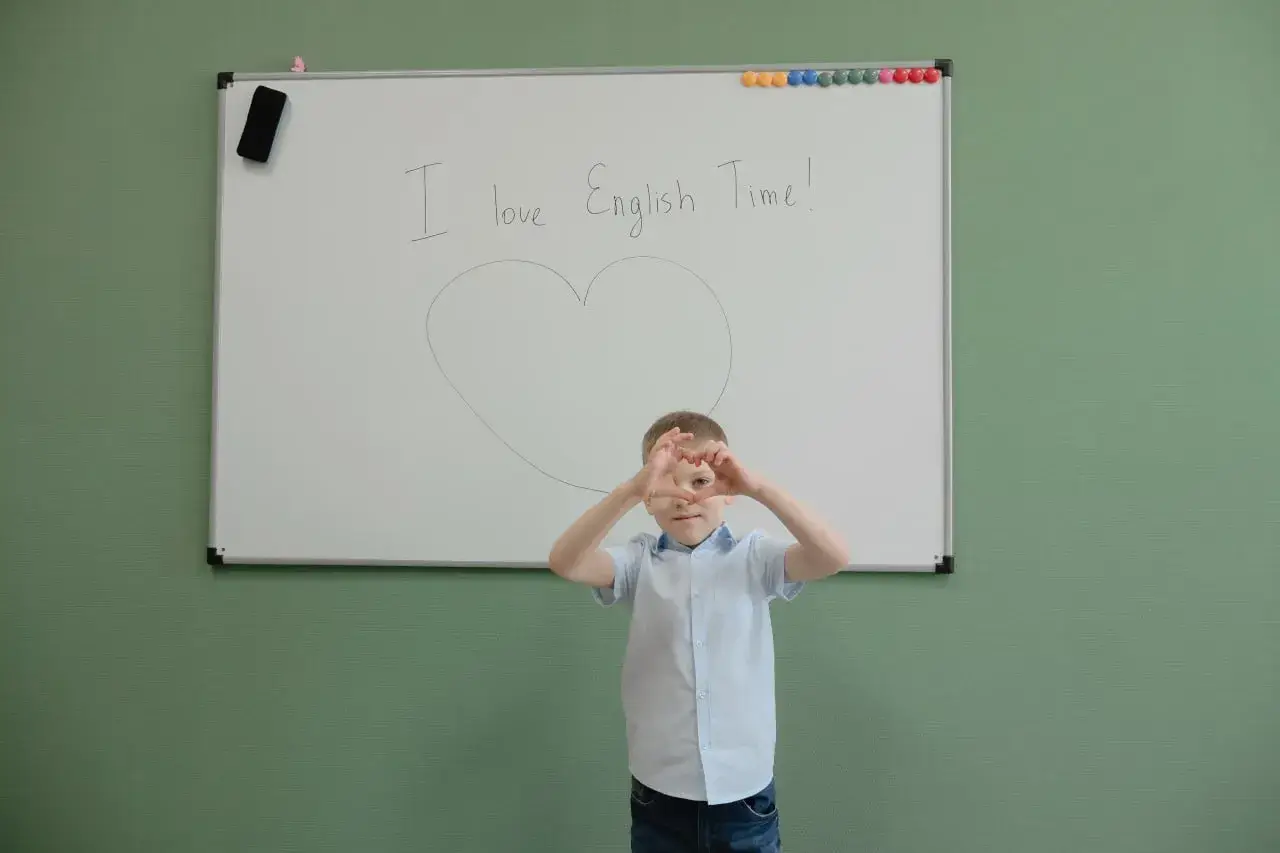 I love English Time!